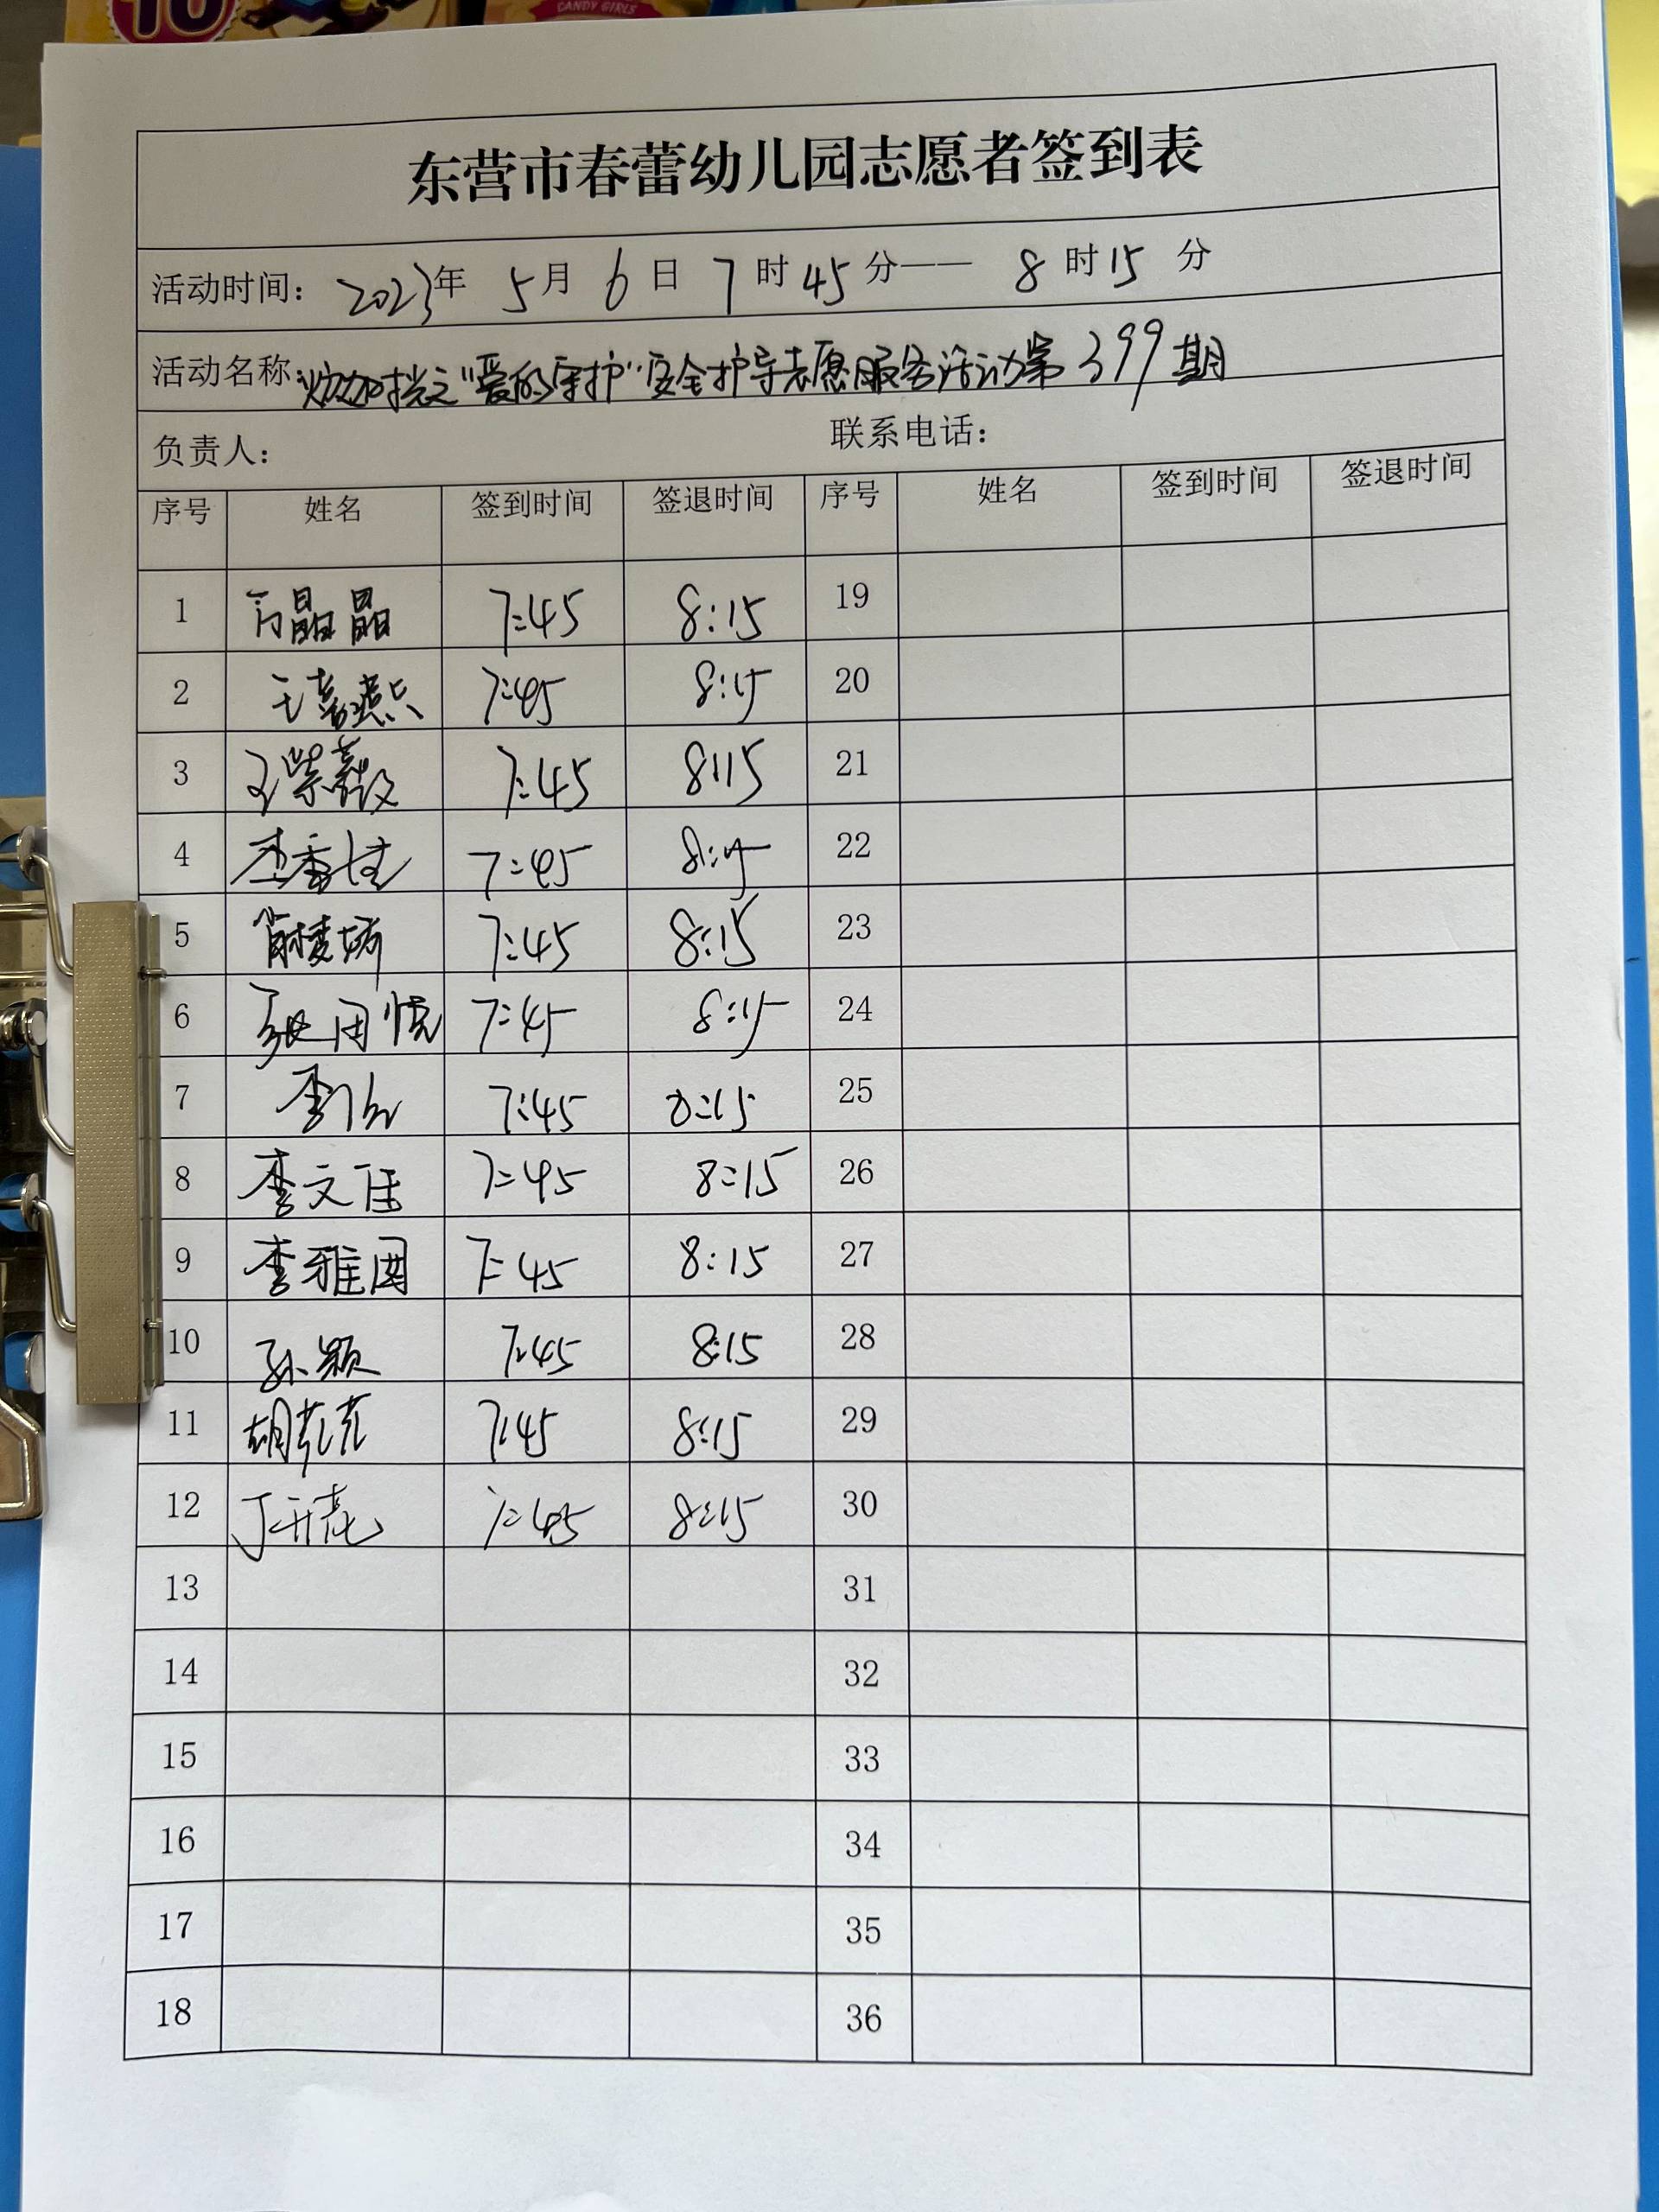 10
CANDY GIRLS
东营市春蕾幼儿园志愿者签到表
活动时间: 2023年 5月 6日 7时 45分—— 8时15分
活动名称: 时光之"爱的守护"安全护导志愿服务活动第399期
负责人: 联系电话:
序号 姓名 签到时间 签退时间 序号 姓名 签到时间 签退时间
1 晶晶 7:45 8:15 19
2 王喜燕 7:45 8:15 20
3 王紫薇 7:45 8:15 21
4 7:45 8:15 22
5 7:45 8:15 23
6 张 悦 7:45 8:15 24
7 李 7:45 8:15 25
8 李文佳 7:45 8:15 26
9 李雅囡 7:45 8:15 27
10 孙颖 7:45 8:15 28
11 胡花花 7:45 8:15 29
12 丁开花 7:45 8:15 30
13 31
14 32
15 33
16 34
17 35
18 36